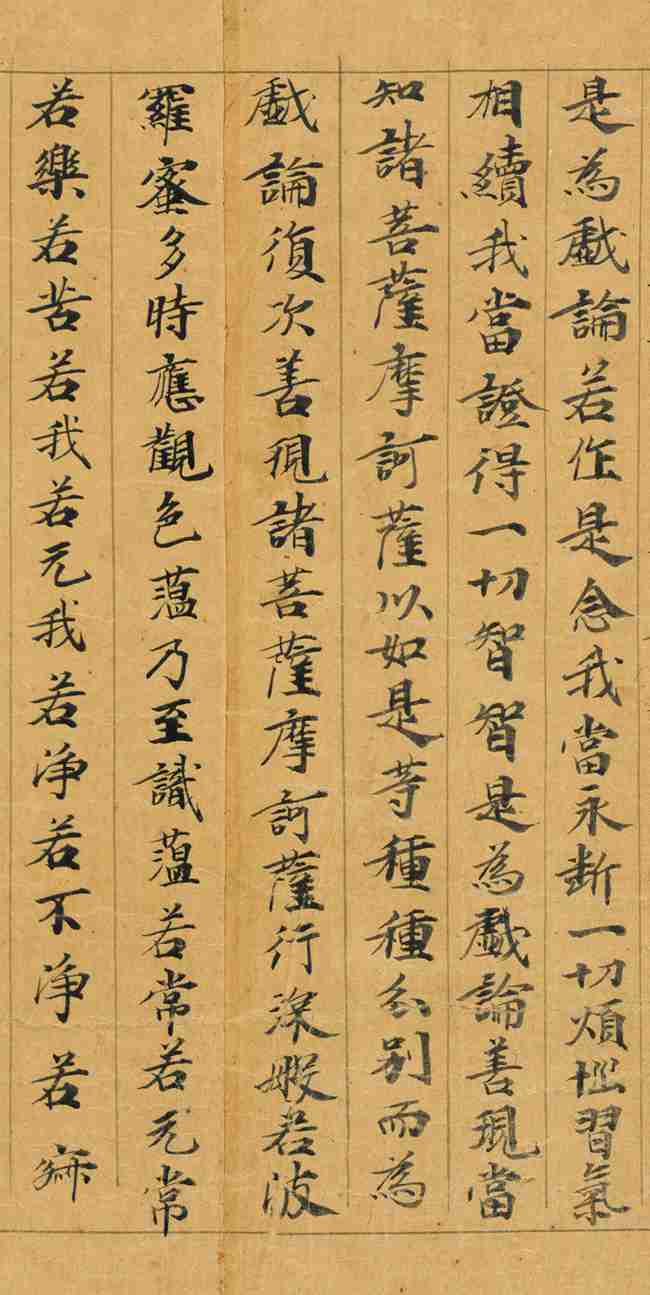 是為戲論若作是念我當永斷一切煩惱習氣
相續我當證得一切智智是為戲論善現當
知諸菩薩摩訶薩以如是等種種分別而為
戲論復次善現諸菩薩摩訶薩行深般若波
羅蜜多時應觀色蘊乃至識蘊若常若无常
若樂若苦若我若无我若淨若不淨若寂